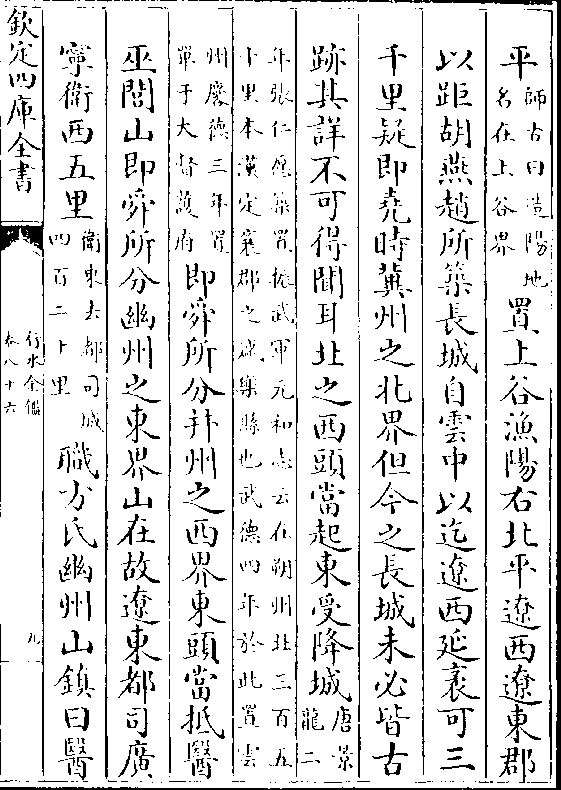 平師古曰造陽地
名在上谷界置上谷漁陽右北平遼西遼東郡
以距胡燕趙所築長城自雲中以迄遼西延袤可三
千里疑即堯時冀州之北界但今之長城未必皆古
跡其詳不可得聞耳北之西頭當起東受降城唐景
龍二
年張仁愿築置振武軍元和志云在朔州北三百五
十里本漢定襄郡之成樂縣也武德四年於此置雲
州慶德三年置
單于大都護府即舜所分并州之西界東頭當抵醫
巫閭山即舜所分幽州之東界山在故遼東都司廣
寧衛西五里衛東去都司城
四百二十里職方氏幽州山鎮曰醫
欽定四庫全書
行水金鑑
卷八十六
九